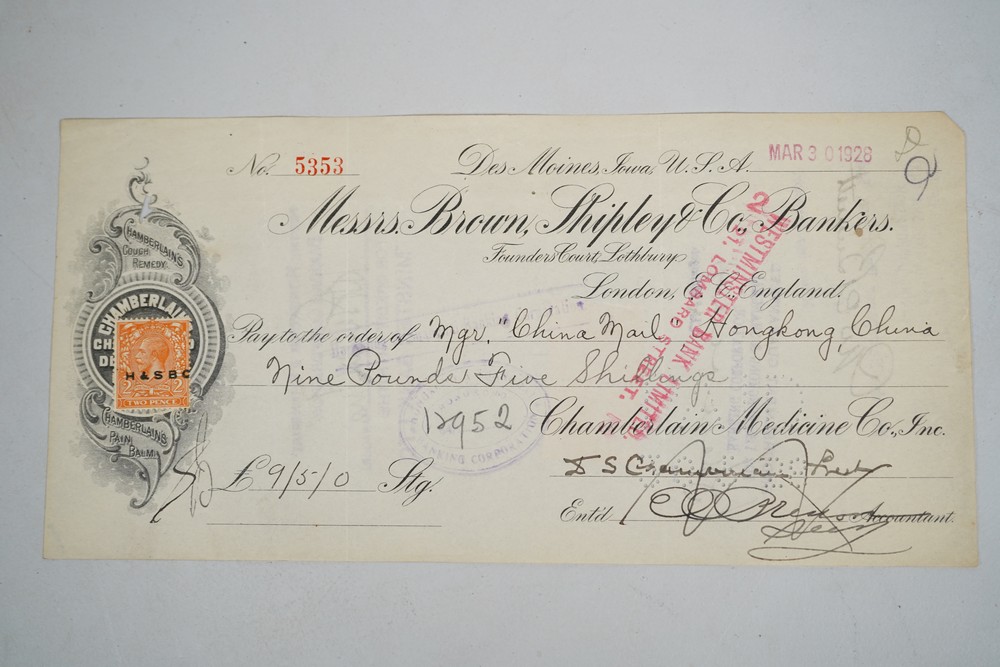 No. 5353
Des Moines, Iowa, U.S.A.
MAR 30 1928
Messrs. Brown, Shipley & Co., Bankers.
Founders Court, Lothbury
London, E.C. England.
Pay to the order of Mgr. "China Mail Hongkong, China
Nine Pounds Five Shillings
Chamberlain Medicine Co., Inc.
£ 9/5/0 Stg.
Ent'd Accountant.
CHAMBERLAIN'S
COUGH
REMEDY.
CHAMBERLAIN
H & S B C
TWO PENCE
CHAMBERLAIN'S
PAIN
BALM
WESTMINSTER BANK LIMITED
21, LOMBARD STREET.
BANKING CORPORATION